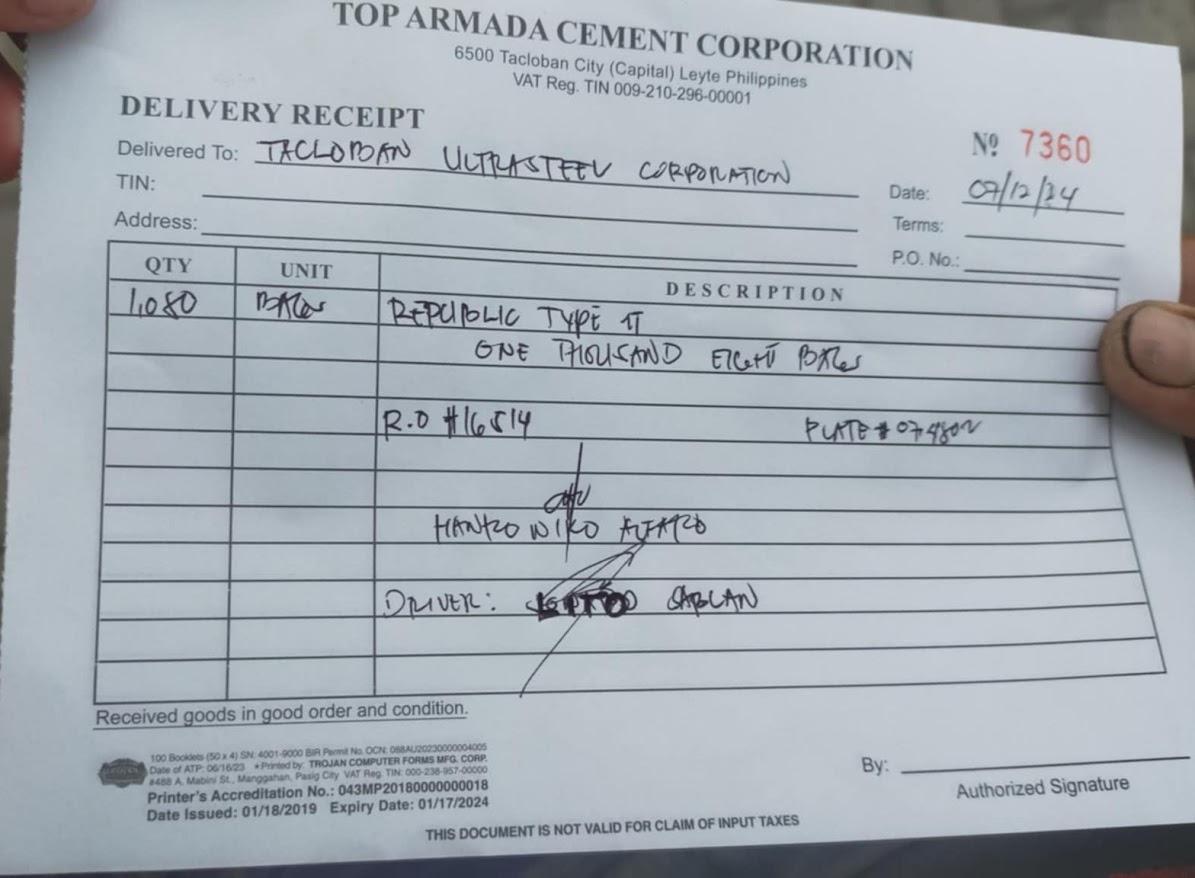 TOP ARMADA CEMENT CORPORATION
6500 Tacloban City (Capital) Leyte Philippines
VAT Reg. TIN 009-210-296-00001
DELIVERY RECEIPT
Nº 7360
Delivered To: TACLOBAN ULTRASTEEL CORPORATION
Date: 07/12/24
TIN:
Terms:
Address:
P.O. No.:
QTY UNIT DESCRIPTION
1,080 BAGS REPUBLIC TYPE 1T
ONE THOUSAND EIGHT BAGS
R.O #16514 PLATE #
HANZO
DRIVER: SABLAN
Received goods in good order and condition.
100 Booklets (50 x 4) SN: 4001-9000 BIR Permit No. OCN: 088AU20230000004005
Date of ATP: 06/16/23 *Printed by: TROJAN COMPUTER FORMS MFG. CORP.
#488 A. Mabini St., Manggahan, Pasig City VAT Reg. TIN: 000-238-957-00000
Printer's Accreditation No.: 043MP20180000000018
Date Issued: 01/18/2019 Expiry Date: 01/17/2024
By:
Authorized Signature
THIS DOCUMENT IS NOT VALID FOR CLAIM OF INPUT TAXES